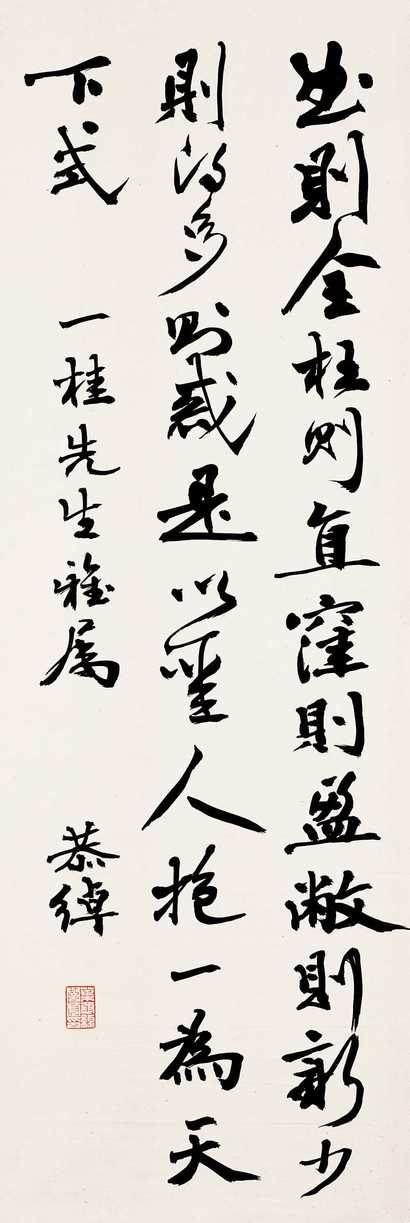 曲則全枉則直窪則盈敝則新少
則得多則惑是以聖人抱一為天
下式
一桂先生雅属
恭綽